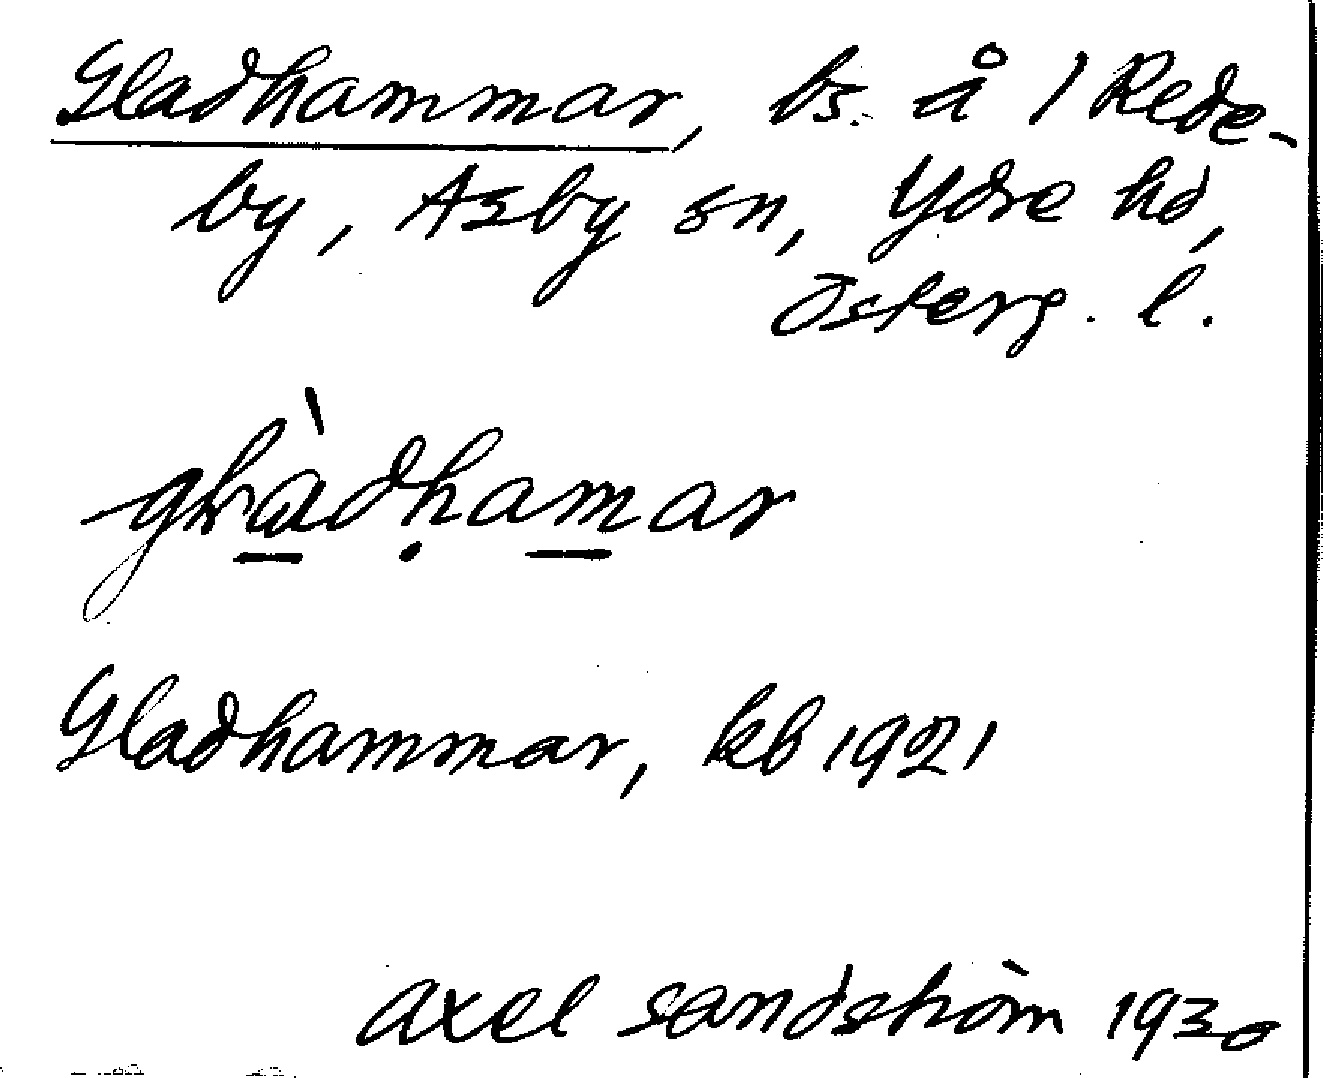 Gladhammar, bs. å 1 Rede-
by, Asby sn, Ydre hd,
Österg. l.
Gladhammar, kb 1921
Axel Sandström 1930